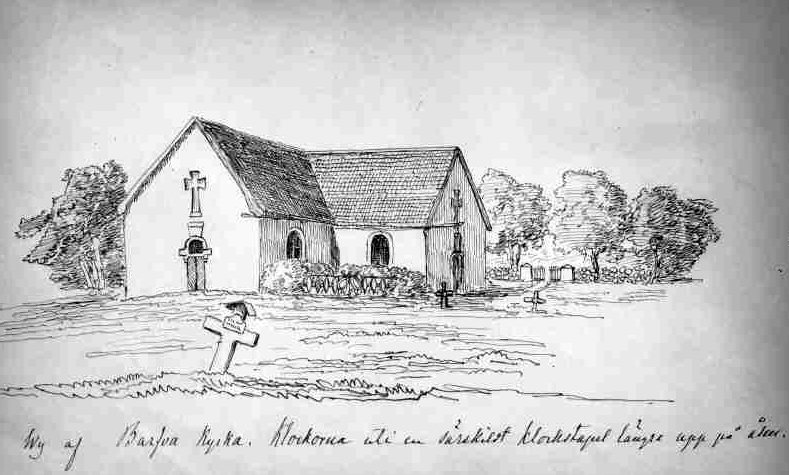 Wy af Barfva Kyrka. Klockorna uti en särskilst klockstapel längre upp på åsen.